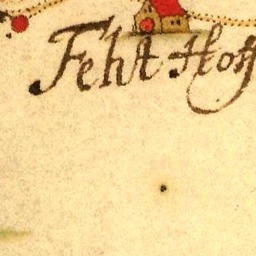 Feht Hoff